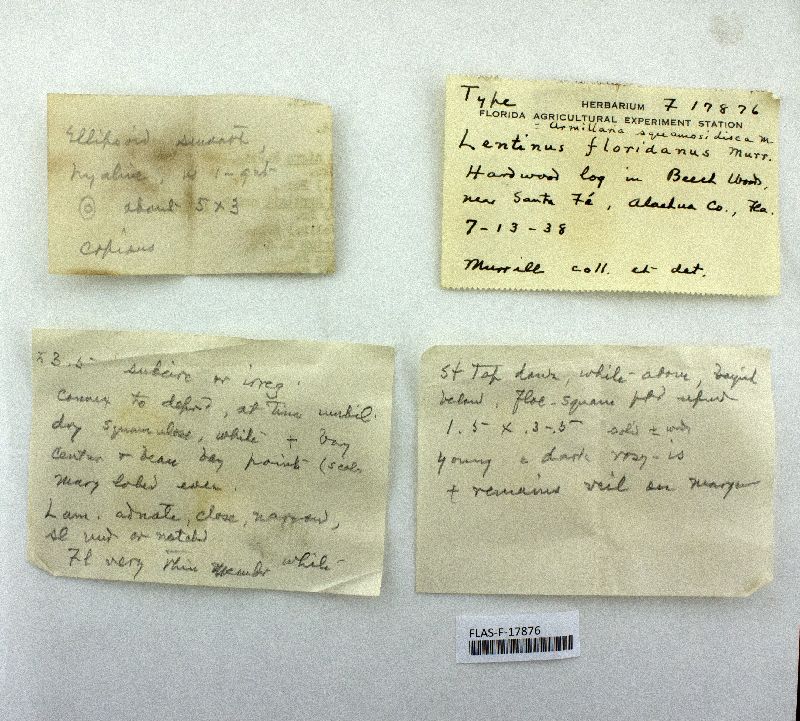 Ellipsoid, smooth,
hyaline, 1-gut
about 5 x 3
Copious
Type
HERBARIUM F 17876
FLORIDA AGRICULTURAL EXPERIMENT STATION
= Armillaria squamosidisca M.
Lentinus floridanus Murr.
Hardwood log in Beech Woods,
near Santa Fé, Alachua Co., Fla.
7-13-38
Murrill coll. et det.
3.5 subcirc or irreg.
Convex to depr'd, at time umbil.
dry squamulose, white + bay
center + dense bay points (scales
marg lobed even.
Lam. adnate, close, narrow,
sl und or notched
Fl very thin white
St Tap down, white above, bayish
below, floc-squam
1.5 x .3-.5 solid
young dark rosy-is
+ remains veil on margin
FLAS-F-17876